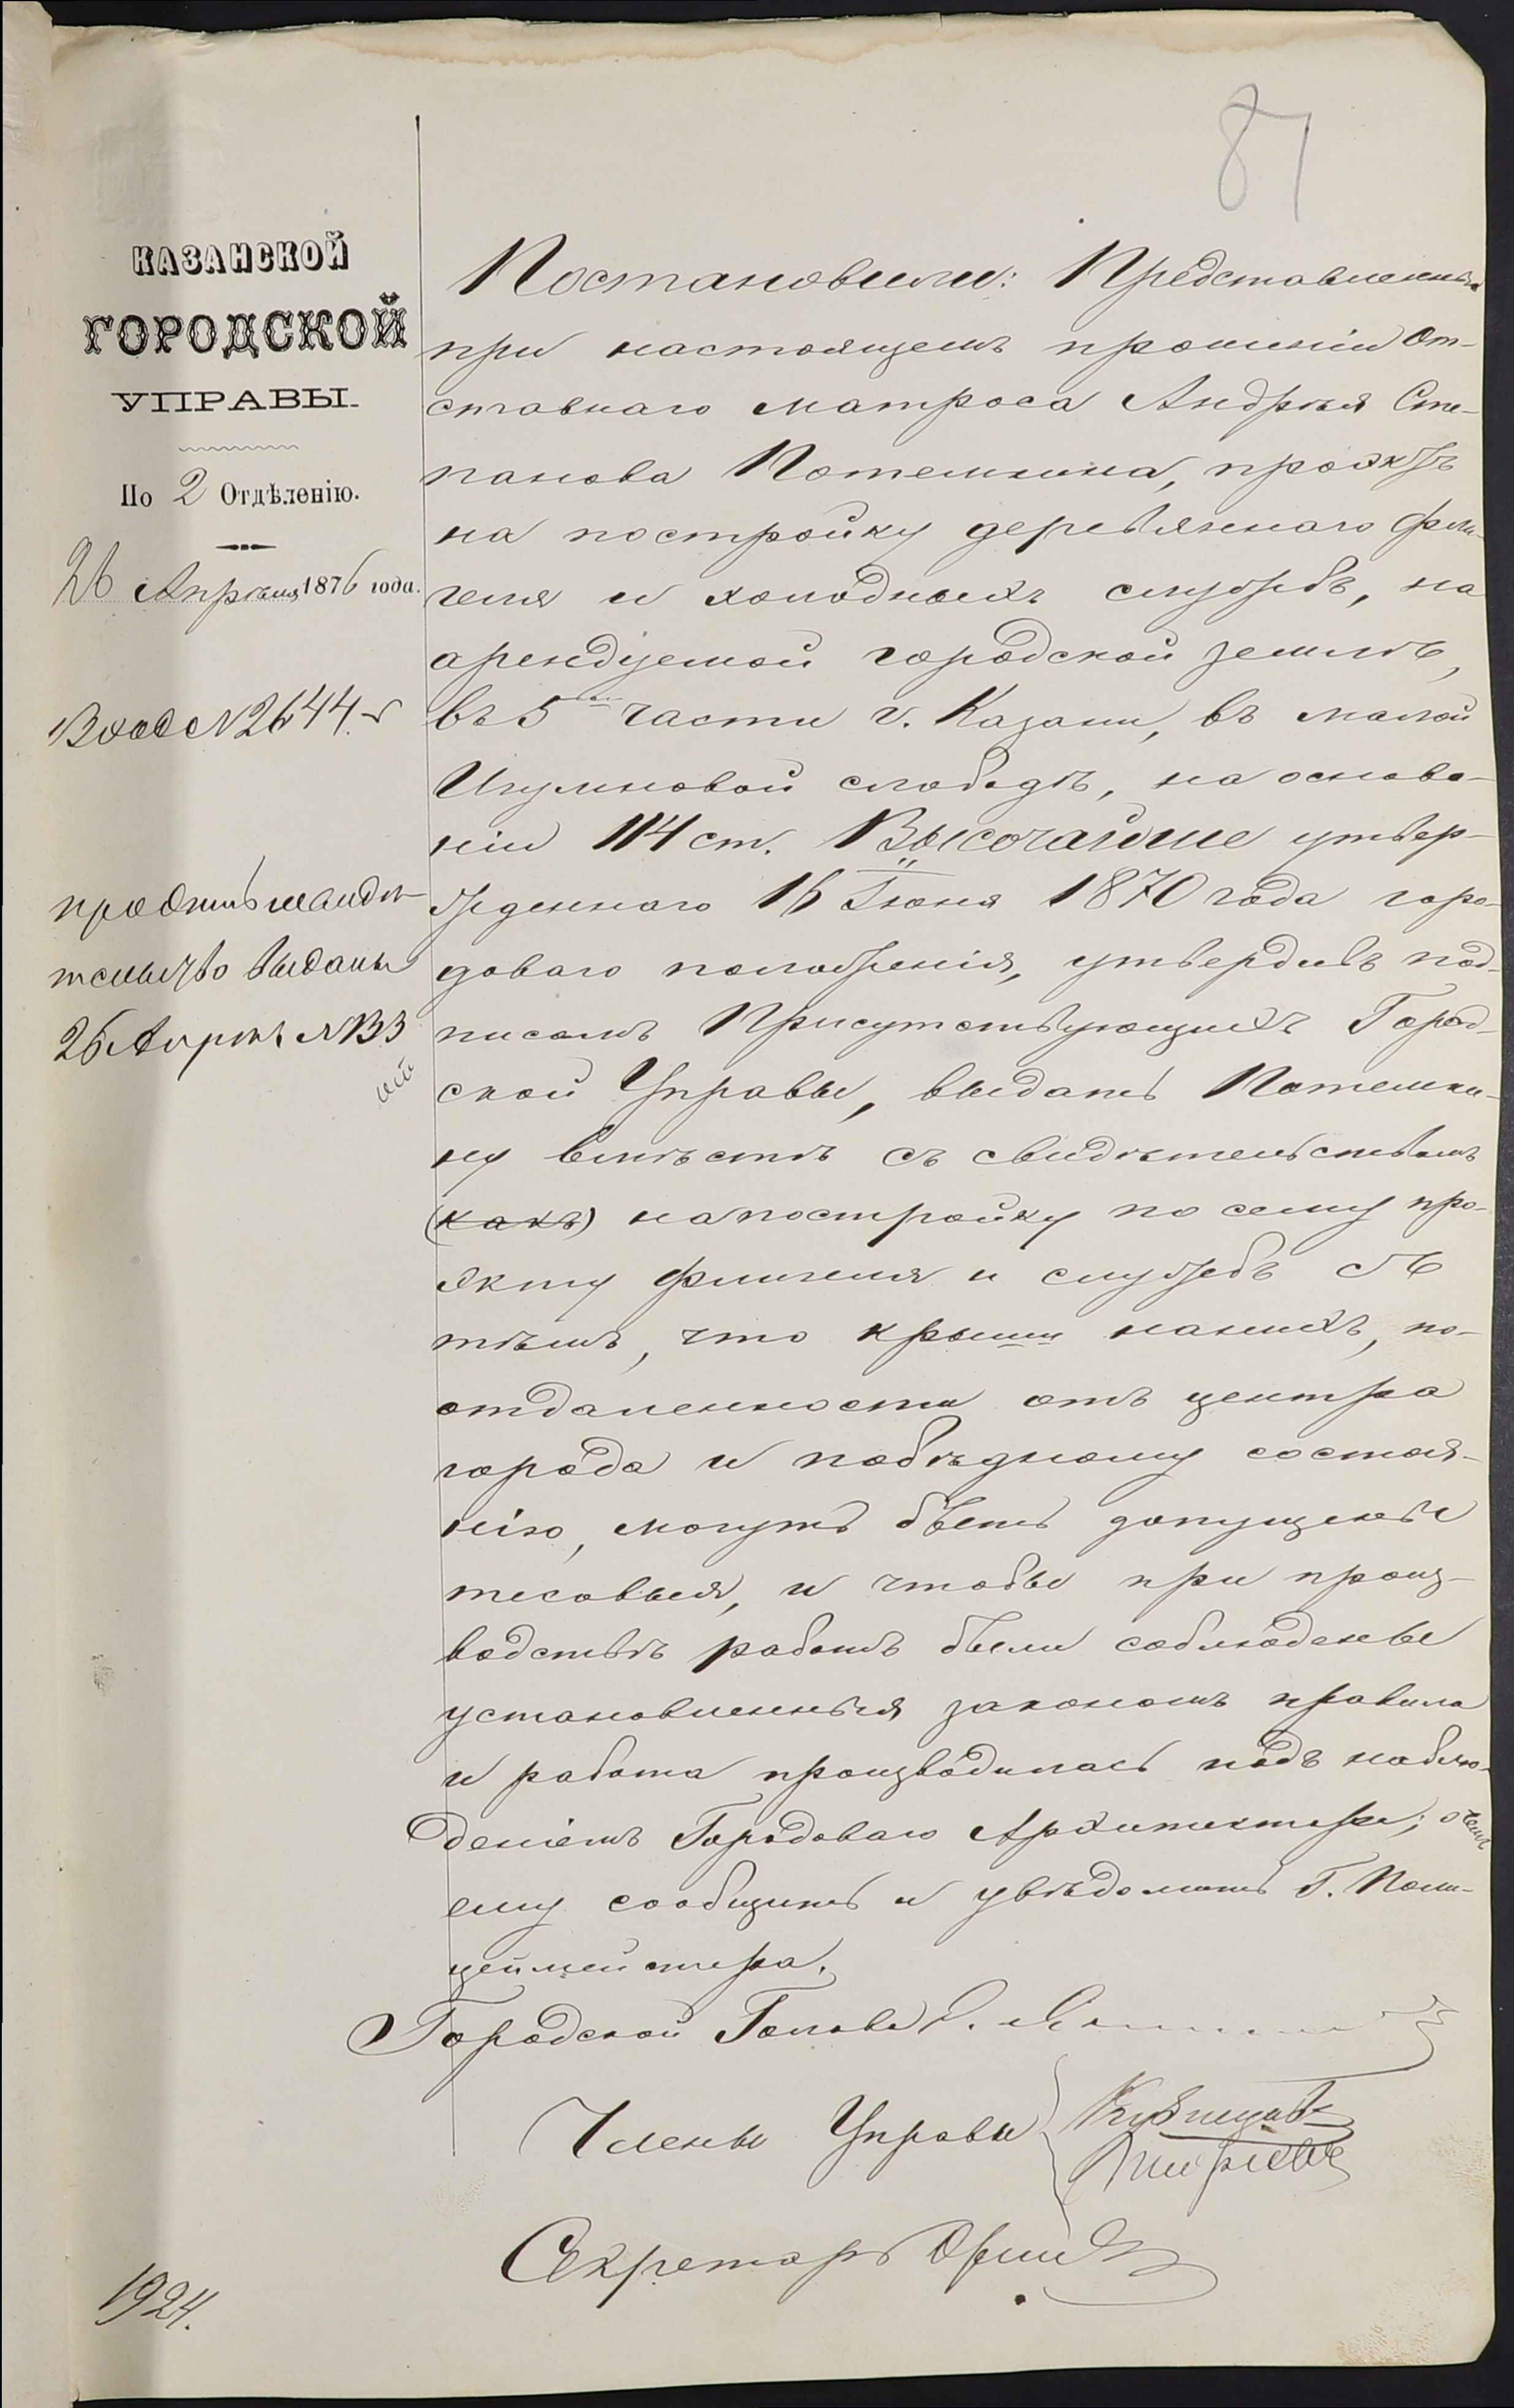 87
КАЗАНСКОЙ
ГОРОДСКОЙ
УПРАВЫ.
По 2 Отдѣленію.
26 Апрѣля 1876 года.
Вход № 2644
выданы
26 Апрѣл №
Постановили: Представленный
при настоящемъ прошеніи От-
ставнаго матроса Андрѣя Сте-
панова Потемкина, проэктъ
на постройку деревяннаго фли-
геля и холодныхъ службъ, на
арендуемой городской землѣ,
въ 5й части г. Казани, въ малой
Игумновой слободѣ, на основа-
ніи 114 ст. Высочайше утвер-
жденнаго 16 Іюня 1870 года горо-
доваго положенія, утвердивъ под-
писомъ Присутствующихъ Город-
ской Управы, выдать Потемки-
ну вмѣстѣ съ свидѣтельствомъ
(какъ) на постройку по сему про-
экту флигеля и службъ съ
тѣмъ, что крыши на нихъ, по
отдаленности отъ центра
города и по бѣдному состоя-
нію, могутъ быть допущены
тесовыя, и чтобы при произ-
водствѣ работъ были соблюдены
установленныя закономъ правила
и работа производилась подъ наблю-
деніемъ Городоваго Архитектора; о чемъ
ему сообщить и увѣдомить Г. Поли-
цеймейстера.
Городской Голова
Члены Управы
Кузнецовъ
Секретарь
1924.